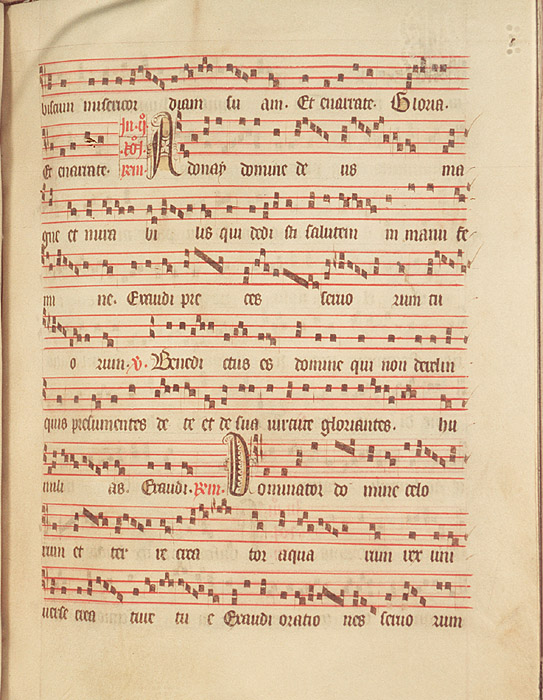 biscum misericor diam su am. Et enarrate. Gloria.
Et enarrate. Adonay domine de us ma
gne et mira bi lis qui dedi sti salutem in manu fe
mi ne. Exaudi pre ces servo rum tu
o rum. v. Benedi ctus es domine qui non derelin
quis presumentes de te et de sua virtute gloriantes. hu
mili as. Exaudi. Dominator do mine celo
rum et ter re crea tor aqua rum rex uni
verse crea ture tu e Exaudi oratio nes servo rum